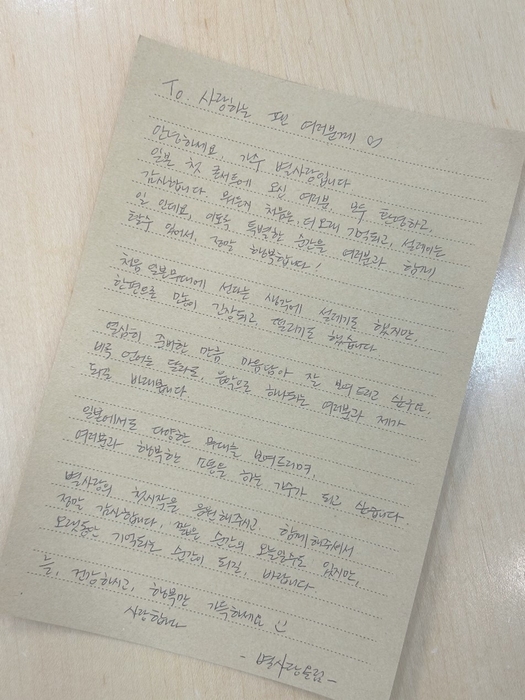 To. 사랑하는 팬 여러분께 ♡
안녕하세요. 가수 별사랑입니다
일본 첫 콘서트에 오신 여러분, 모두 환영하고,
감사합니다. 뭐든지 처음은, 더 오래 기억되고, 설레이는
일 인데요, 이토록, 특별한 순간을 여러분과 함께
할수 있어서, 정말 행복합니다!
처음 일본무대에 선다는 생각에 설레기도 했지만,
한편으로 많이 긴장되고 떨리기도 했습니다
열심히 준비한 만큼 마음담아 잘 보여드리고 싶구요.
비록 언어는 달라도, 음악으로 하나되는 여러분과 제가
되길 바래봅니다
일본에서도 다양한 무대를 보여드리며,
여러분과 행복한 소통을 하는 가수가 되고 싶습니다
별사랑의 첫시작을 응원해주시고 함께해주셔서
정말 감사합니다. 짧은 순간의 오늘일수도 있지만,
오랫동안 기억되는 순간이 되길, 바랍니다
늘, 건강하시고, 행복만 가득하세요 :)
사랑합니다
- 별사랑드림 -